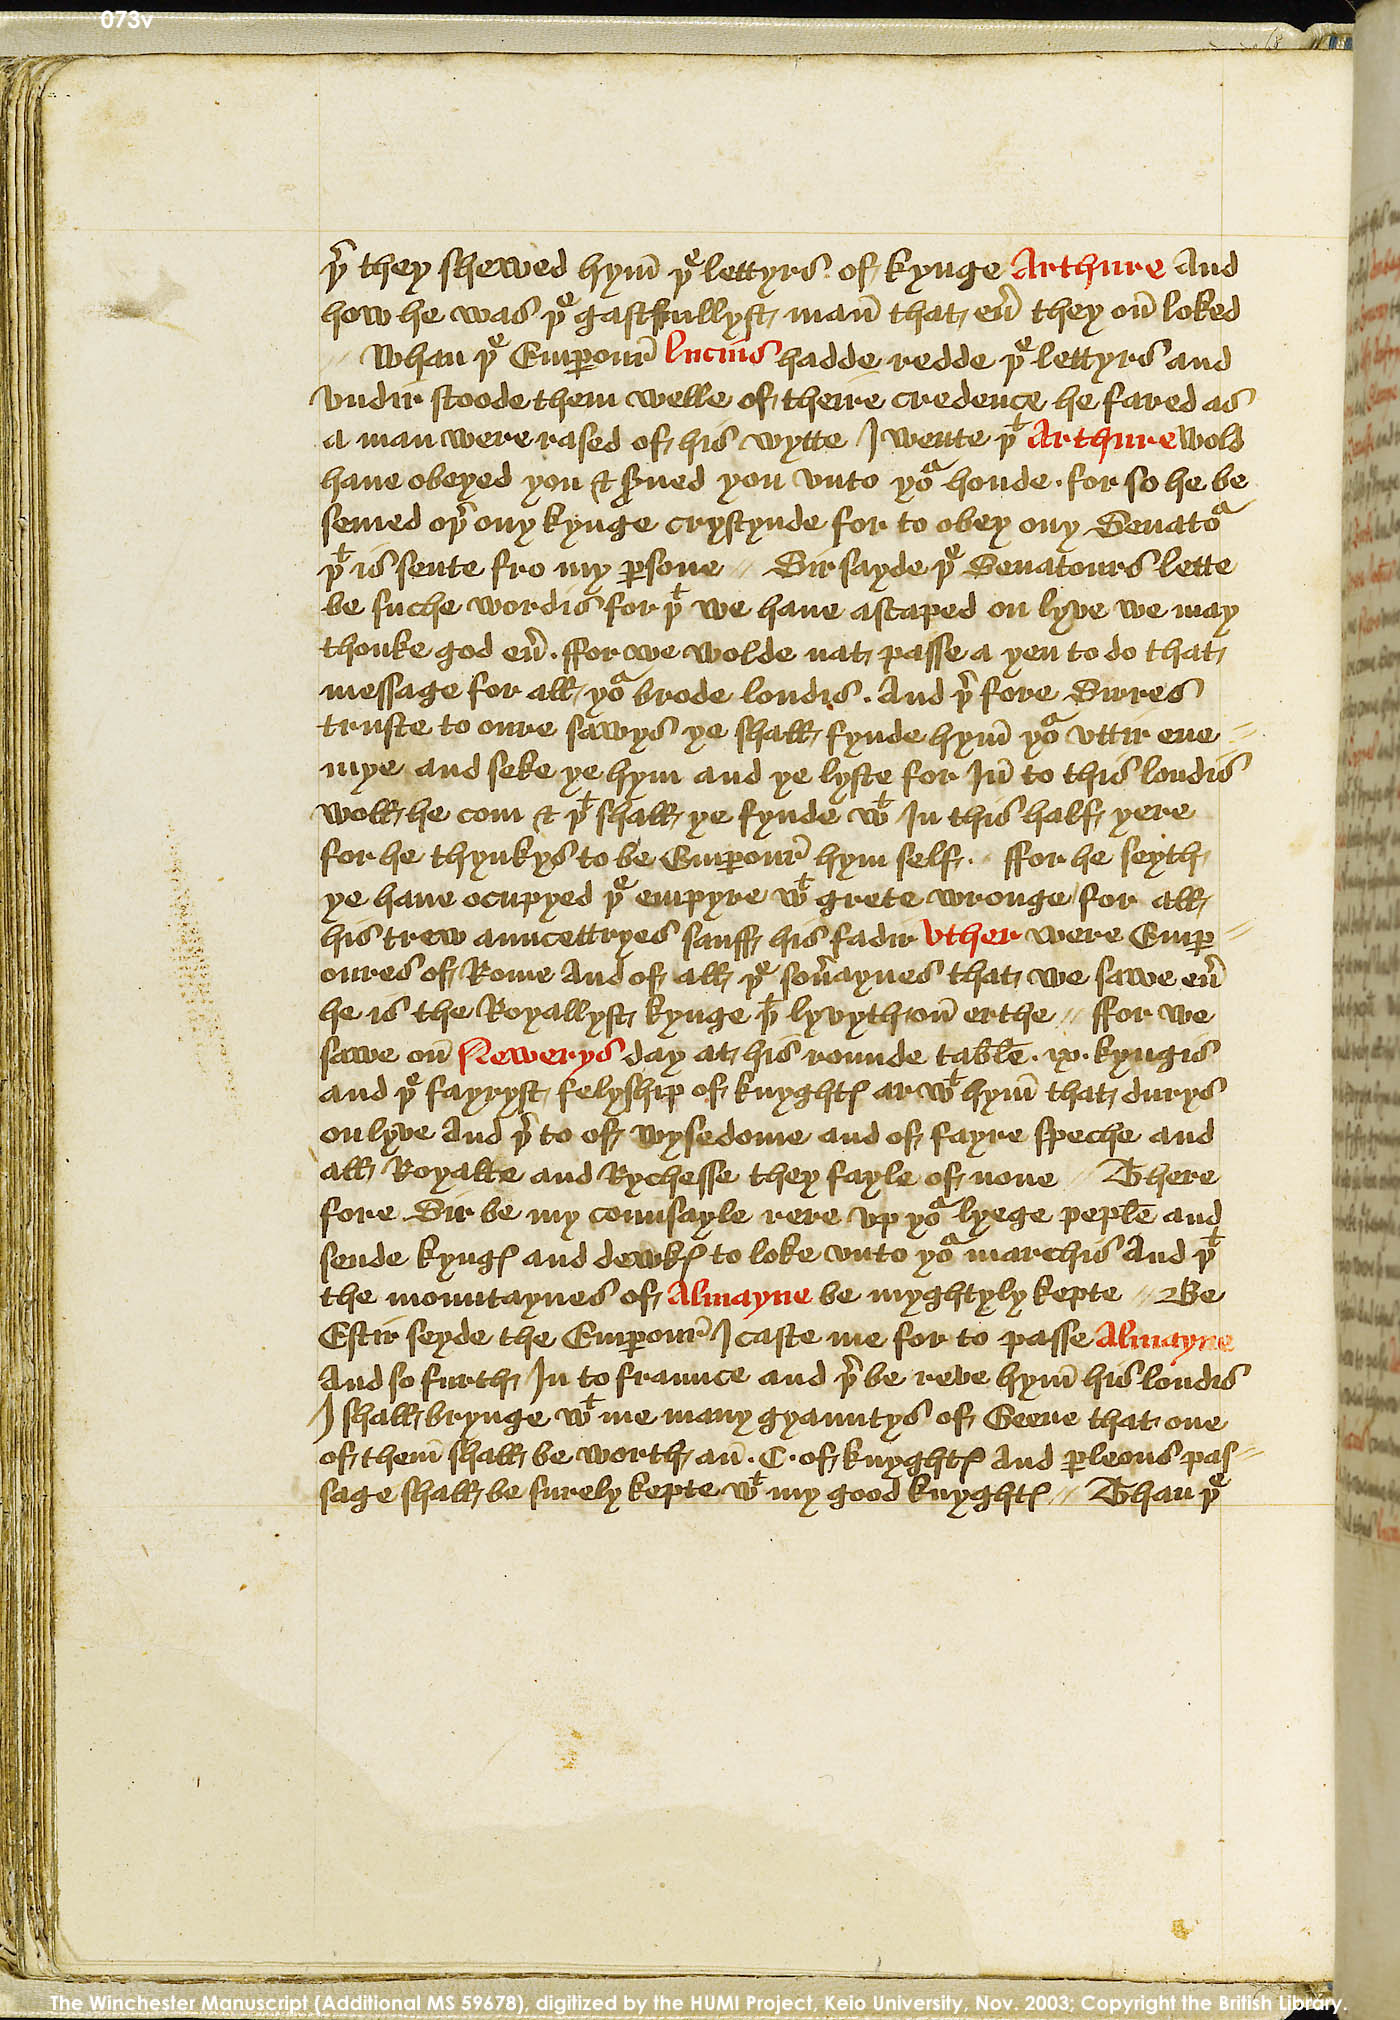 073v
þr̄ they shewed hym̄ þe lettyrs of kynge Arthure And
how he was þe gastfullyst man̄ that eũ they on̄ loked
// Whan þe Emꝑour̄ lucius hadde redde þe lettyrs and
vndir stoode them welle of theire credence he fared as
a man were rased of his wytte I wente þt Arthure wold
haue obeyed you & s̃ued you vnto yor honde . for so he be
semed oþr̄ ony kynge crystynde for to obey ony Senator
þt is sente fro my ꝑsone // Sir sayde þe Senatours lette
be suche wordis for þt we haue ascaped on lyve we may
thonke god eũ . ffor we wolde nat passe a yen to do that
message for all yor brode londis . And þr̄ fore Sirres
truste to oure sawys ye shall fynde hym̄ yor vttir ene //
mye and seke ye hym and ye lyste for In̄ to this londis
woll he com & þt shall ye fynde wt In this half yere
for he thynkys to be Emꝑour̄ hym self . // ffor he seyth
ye haue ocupyed þe empyre wt grete wronge for all
his trew aunccettryes sauff his fadir Vther were Emꝑ //
oures of Rome And of all þe soũaynes that we sawe eũ
he is the Royallyst kynge þt lyvyth on̄ erthe // ffor we
sawe on̄ Newerys day at his rounde table . ix . kyngis
and þe fayryst felyship of knyghtꝭ ar wt hym̄ that durys
on lyve And þr̄ to of wysedome and of fayre speche and
all Royalte and Rychesse they fayle of none // There
fore Sir be my counsayle rere vp yor lyege peple and
sende kyngꝭ and dewkꝭ to loke vnto yor marchis And þt
the mountaynes of Almayne be myghtyly kepte // Be
Estir seyde the Emꝑour̄ I caste me for to passe Almayne
And so furth In to fraunce and þr̄ be reve hym̄ his londis
I shall brynge wt me many gyauntys of Geene that one
of them̄ shall be worth an̄ . C . of knyghtꝭ And ꝑleous pas //
sage shall be surely kepte wt my good knyghtꝭ // Than þe
The Winchester Manuscript (Additional MS 59678), digitized by the HUMI Project, Keio University, Nov. 2003; Copyright the British Library.